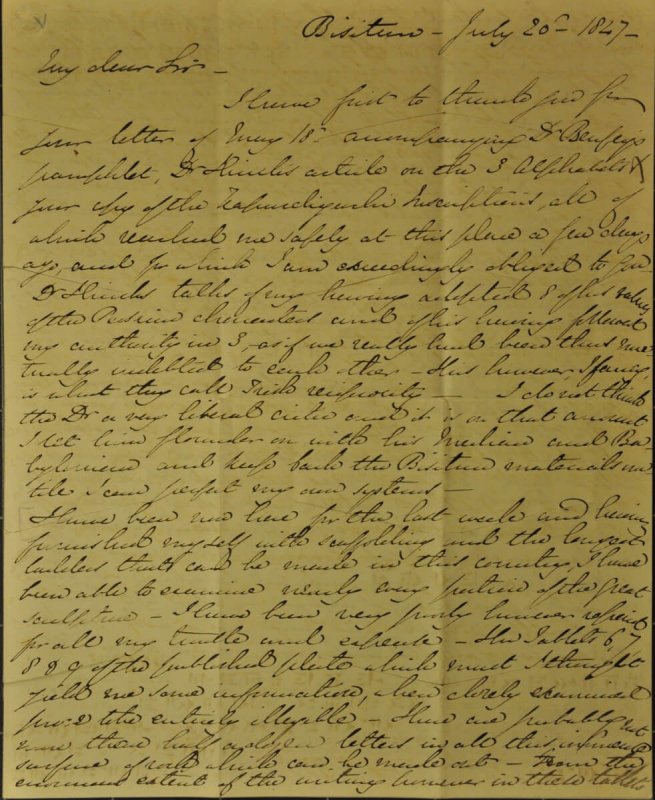 Bisitun - July 20th - 1847 -
My dear Sir -
I have first to thank you for
your letter of May 18th accompanying Dr Benfey's
pamphlet, Dr Hincks article on the 3 Alphabets &
your copy of the Inscriptions, all of
which reached me safely at this place a few days
ago, and for which I am exceedingly obliged to you.
Dr Hincks talks of my having adopted 8 of his values
of the Persian characters and of his having followed
my authority in 3, as if we really had been thus mu-
tually indebted to each other - this however, I fancy,
is what they call Irish reciprocity - I do not think
the Dr a very liberal critic and it is on that account
I let him flounder on with his Median and Ba-
bylonian and keep back the Bisitun materials un-
til I can perfect my own systems -
I have been now here for the last week and having
furnished myself with scaffolding and the longest
ladders that can be made in this country, I have
been able to examine nearly every portion of the great
sculpture - I have been very poorly however repaid
for all my trouble and expense - The Tablets 6, 7,
8 & 9 of the published plate which must I thought
yield me some information, when closely examined
prove to be entirely illegible - There are probably not
more than half a dozen letters in all this immense
surface of rock which can be made out - From the
enormous extent of the writing however in these tablets